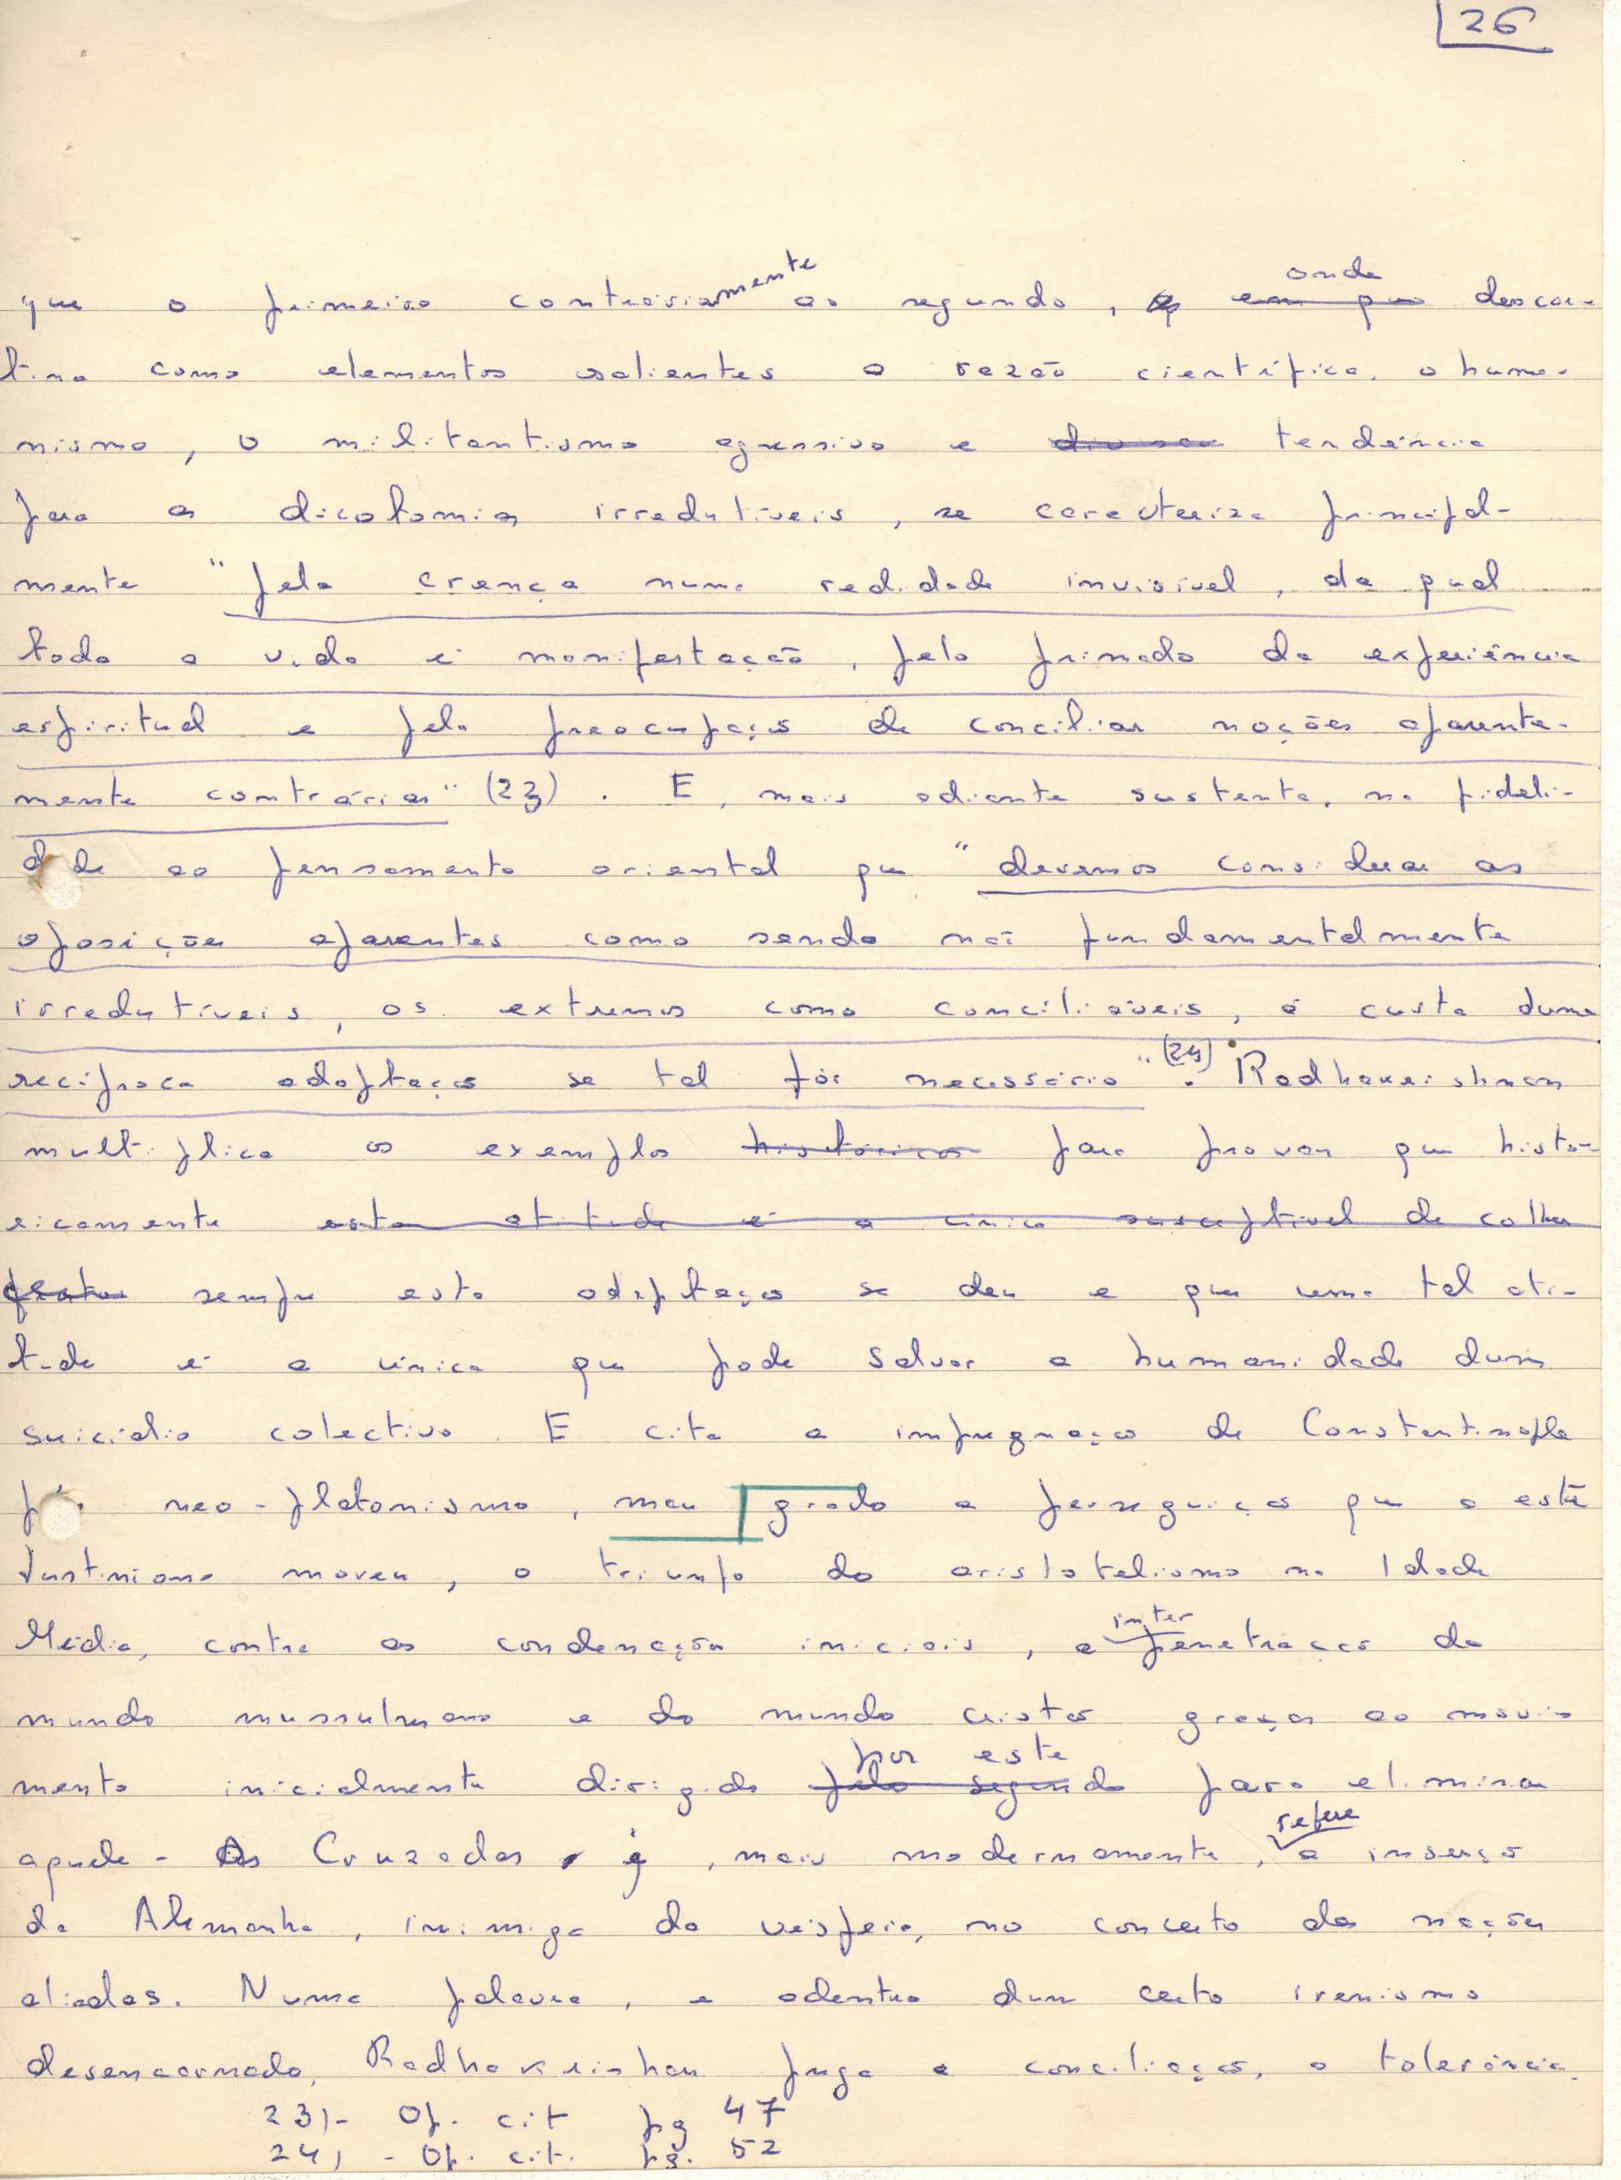 26
que o primeiro contrariamente ao segundo, onde descor-
tina como elementos salientes a razão científica, o huma-
nismo, o militantismo agressivo e tendência
para as dicotomias irredutíveis, se caracteriza principal-
mente "pela crença numa realidade invisível, da qual
toda a vida é manifestação, pelo primado da experiência
espiritual e pela preocupação de conciliar noções aparente-
mente contrárias" (23). E, mais adiante sustenta, na fideli-
dade ao pensamento oriental que "devemos considerar as
oposições aparentes como sendo não fundamentalmente
irredutíveis, os extremos como conciliáveis, à custa duma
recíproca adaptação se tal fôr necessário" (24). Radhakrishnan
multiplica os exemplos históricos para provar que histo-
ricamente esta atitude é a única susceptível de colher
frutos sempre esta adaptação se deu e que uma tal ati-
tude é a única que pode salvar a humanidade dum
suicídio colectivo. E cita a impregnação de Constantinopla
neo-platonismo, mau grado a perseguição que a este
Justiniano moveu, o triunfo do aristotelismo na Idade
Média, contra as condenações iniciais, a interpenetração do
mundo mussulmano e do mundo cristão graças ao movi-
mento inicialmente dirigido pelo segundo por este para eliminar
aquele - As Cruzadas, e, mais modernamente, refere a inserção
da Alemanha, inimiga da véspera, no concerto das nações
aliadas. Numa palavra, e adentro dum certo irenismo
desencarnado, Radhakrishnan prega a conciliação, a tolerância,
23) - Op. cit pg 47
24) - Op. cit. pg. 52